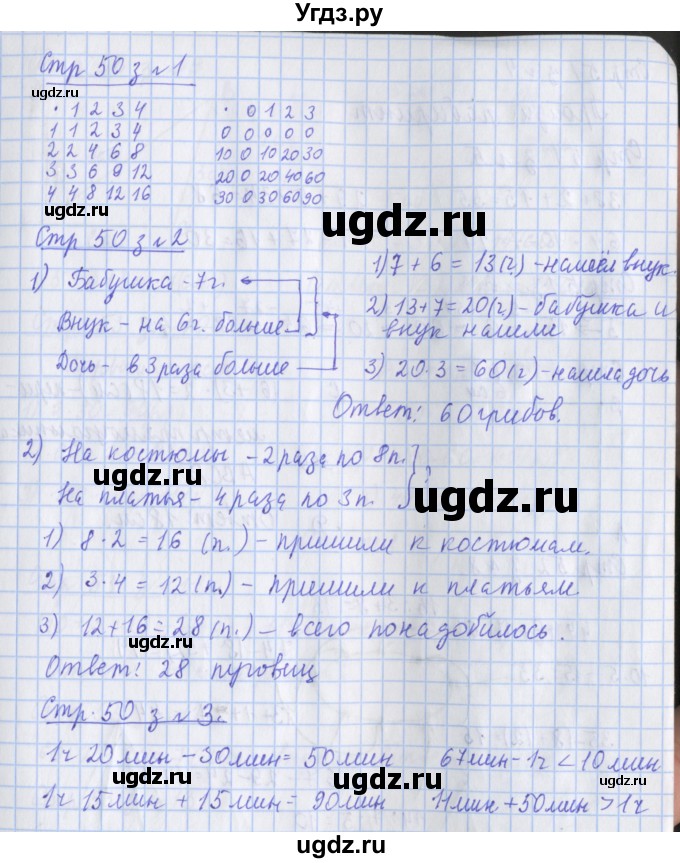 Угдз.ру
Стр 50 з №1
ugdz.ru
· 1 2 3 4
1 1 2 3 4
2 2 4 6 8
3 3 6 9 12
4 4 8 12 16
· 0 1 2 3
0 0 0 0 0
10 0 10 20 30
20 0 20 40 60
30 0 30 60 90
ugdz.ru
ugdz.ru
Стр 50 з №2
1) Бабушка - 7г.
Внук - на 6г. больше
Дочь - в 3 раза больше
ugdz.ru
1) 7 + 6 = 13(г) - нашёл внук.
2) 13+7=20(г) - бабушка и
внук нашли
3) 20·3=60(г) - нашла дочь
Ответ: 60 грибов.
2) На костюмы - 2 раза по 8п.
На платья - 4 раза по 3п. ?
ugdz.ru
ugdz.ru
1) 8·2=16 (п.) - пришили к костюмам.
2) 3·4=12(п.) - пришили к платьям
3) 12+16=28(п.) - всего понадобилось.
ugdz.ru
Ответ: 28 пуговиц
Стр. 50 з №3.
1ч 20мин - 30мин = 50мин 67мин - 1ч < 10мин
ugdz.ru
ugdz.ru
1ч 15мин + 15мин = 90мин 11мин + 50мин > 1ч